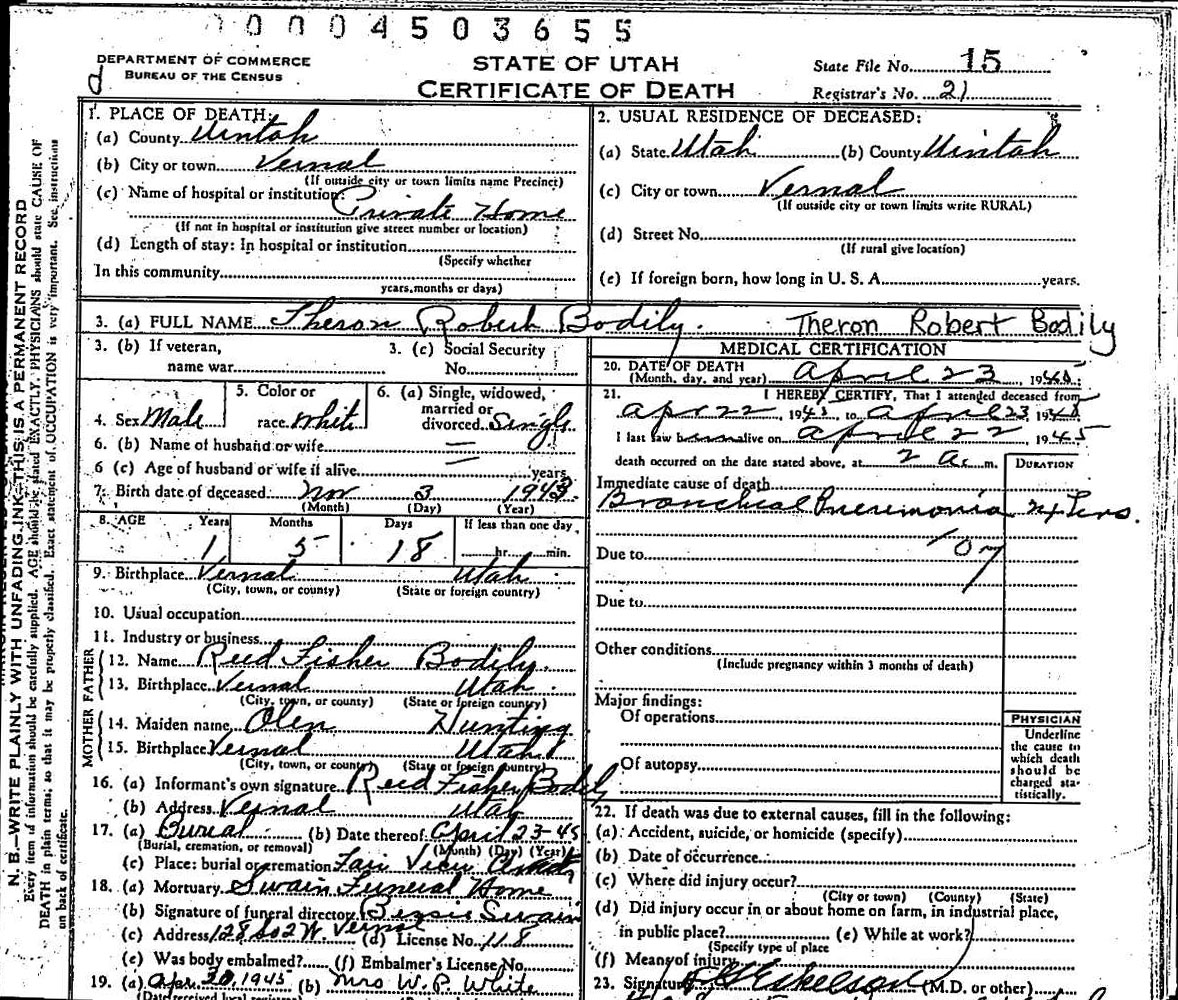 0 0 0 4 5 0 3 6 5 5
DEPARTMENT OF COMMERCE
BUREAU OF THE CENSUS
d
STATE OF UTAH
CERTIFICATE OF DEATH
State File No. 15
Registrar's No. 21
1. PLACE OF DEATH:
(a) County Uintah
(b) City or town Vernal
(If outside city or town limits name Precinct)
(c) Name of hospital or institution:
Private Home
(If not in hospital or institution give street number or location)
(d) Length of stay: In hospital or institution
(Specify whether
In this community
years, months or days)
2. USUAL RESIDENCE OF DECEASED:
(a) State Utah (b) County Uintah
(c) City or town Vernal
(If outside city or town limits write RURAL)
(d) Street No.
(If rural give location)
(e) If foreign born, how long in U. S. A. years.
3. (a) FULL NAME Theron Robert Bodily. Theron Robert Bodily
3. (b) If veteran,
name war
3. (c) Social Security
No.
4. Sex Male
5. Color or
race White
6. (a) Single, widowed,
married or
divorced Single
6. (b) Name of husband or wife
6 (c) Age of husband or wife if alive years
7. Birth date of deceased Nov 3 1943
(Month) (Day) (Year)
8. AGE Years Months Days If less than one day
1 5 18 hr. min.
9. Birthplace Vernal Utah
(City, town, or county) (State or foreign country)
10. Usual occupation
11. Industry or business
FATHER
12. Name Reed Fisher Bodily.
13. Birthplace Vernal Utah.
(City, town, or county) (State or foreign country)
MOTHER
14. Maiden name Olen Hunting
15. Birthplace Vernal Utah
(City, town, or county) (State or foreign country)
16. (a) Informant's own signature Reed Fisher Bodily
(b) Address Vernal Utah
17. (a) Burial (b) Date thereof April 23-45
(Burial, cremation, or removal) (Month) (Day) (Year)
(c) Place: burial or cremation Fair View
18. (a) Mortuary Swain Funeral Home
(b) Signature of funeral director Bessie Swain
(c) Address 128 So 2 W. Vernal (d) License No. 118
(e) Was body embalmed? (f) Embalmer's License No.
19. (a) Apr. 30, 1945 (b) Mrs W. P. White
(Date received local registrar)
MEDICAL CERTIFICATION
20. DATE OF DEATH
(Month, day, and year) April 23, 1945.
21. I HEREBY CERTIFY, That I attended deceased from
Apr 22, 1945, to April 23, 1945
I last saw him alive on April 22, 1945
death occurred on the date stated above, at 2 a. m. DURATION
Immediate cause of death
Bronchial Pneumonia
107
Due to
Due to
Other conditions
(Include pregnancy within 3 months of death)
Major findings:
Of operations
Of autopsy
PHYSICIAN
Underline
the cause to
which death
should be
charged sta-
tistically.
22. If death was due to external causes, fill in the following:
(a) Accident, suicide, or homicide (specify)
(b) Date of occurrence
(c) Where did injury occur?
(City or town) (County) (State)
(d) Did injury occur in or about home on farm, in industrial place,
in public place? (e) While at work?
(Specify type of place
(f) Means of injury
23. Signature Eskelson (M.D. or other)
N. B.—WRITE PLAINLY WITH UNFADING INK—THIS IS A PERMANENT RECORD
Every item of information should be carefully supplied. AGE should be stated EXACTLY. PHYSICIANS should state CAUSE OF
DEATH in plain terms; so that it may be properly classified. Exact statement of OCCUPATION is very important. See instructions
on back of certificate.